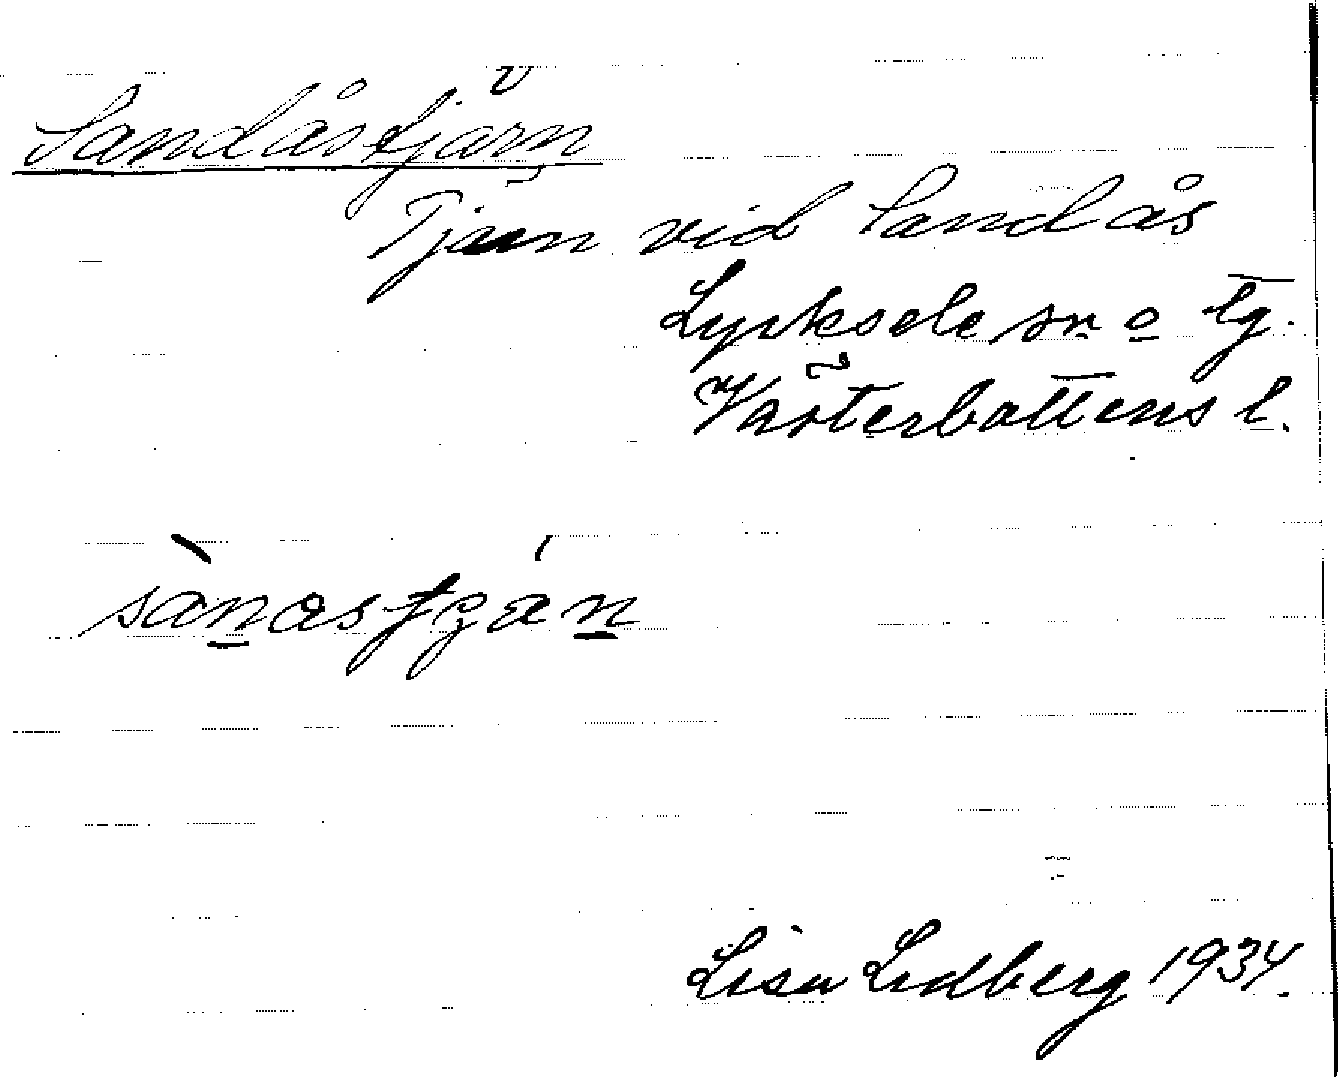 Sandåstjärn
Tjärn vid Sandås
Lycksele sn o tg.
Västerbottens l.
Lisa Lidberg 1934.